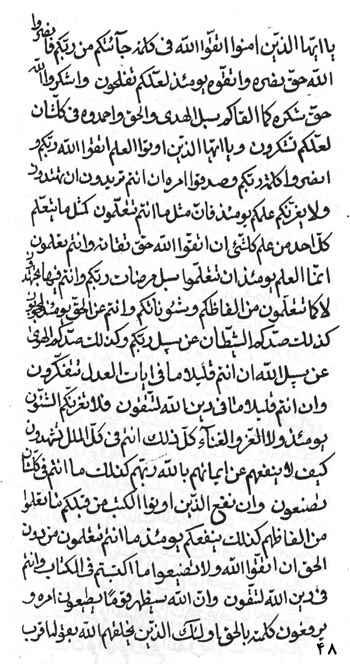 يا ايها الذين امنوا اتقوا الله في كلمة جائتكم من ربكم فانصروا
الله حق نصره واتقوه يومئذ لعلكم تفلحون واشكروا الله
حق شكره كما القاكم سبل الهدى والحق واحمدوه في كل شان
لعلكم تشكرون ويا ايها الذين اوتوا العلم اتقوا الله ربكم و
انصروا كلمة ربكم وصدقوا امره ان انتم تريدون ان تهتدون
ولا يغرنكم علمكم يومئذ فان مثل ما انتم تعلمون كمثل ما يتعلم
كل احد من علم كل شئ ان اتقوا الله حق تقاته وانتم تعلمون
انما العلم يومئذ ان تعلموا سبل مرضات ربكم وانتم فيها
لا كما تعلمون من الفاظكم وشئوناتكم وانتم عن الحق يومئذ
كذلك صدكم الشيطان عن سبل ربكم وكذلك صدكم الهوى
عن سبل الله ان انتم قليلا ما في ايات العدل تتفكرون
وان انتم قليلا ما في دين الله لتتقون فلا تغرنكم الشئون
يومئذ ولا العز والغناء كل ذلك انتم في كل الملل تشهدون
كيف لا ينفعهم عن ايمانهم بالله ربهم كذلك ما انتم في كل شان
تصنعون وان نفع الذين اوتوا الكتب من قبلكم ما يعلموا
من الفاظهم كذلك ينفعكم يومئذ ما انتم تعلمون من دون
الحق ان اتقوا الله ولا تضيعوا ما اكتبتم في الكتاب وانتم
في دين الله لتتقون وان الله سيظهر قوما يطيعون امره و
يرفعون كلمته بالحق اولئك الذين يخلفهم الله بعزة لما قرب
۴۸